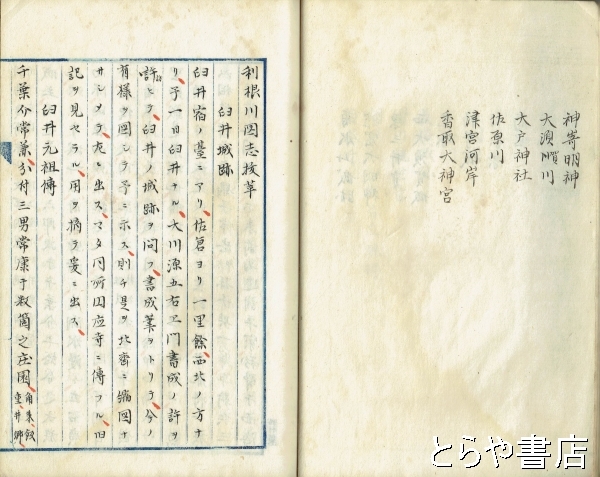 神嵜明神
大須賀川
大戸神社
佐原川
津宮河岸
香取大神宮
利根川図志抜萃
臼井城跡
臼井宿ノ臺ニアリ佐倉ヨリ一里餘西北ノ方ナ
リ予一日臼井ナル大川源五右エ門書成ノ許ヲ
訪ヒテ臼井ノ城跡ヲ問フ書成筆ヲトリテ今ノ
有様ヲ図シテ予ニ示ス則チ是ヲ北斎ニ縮図ナ
サシメテ左ニ出スマタ同所円應寺ニ傳フル旧
記ヲ見セラル用ヲ摘テ爰ニ出ス
臼井元祖傳
千葉介常兼分付三男常康于数箇之庄園
とらや書店